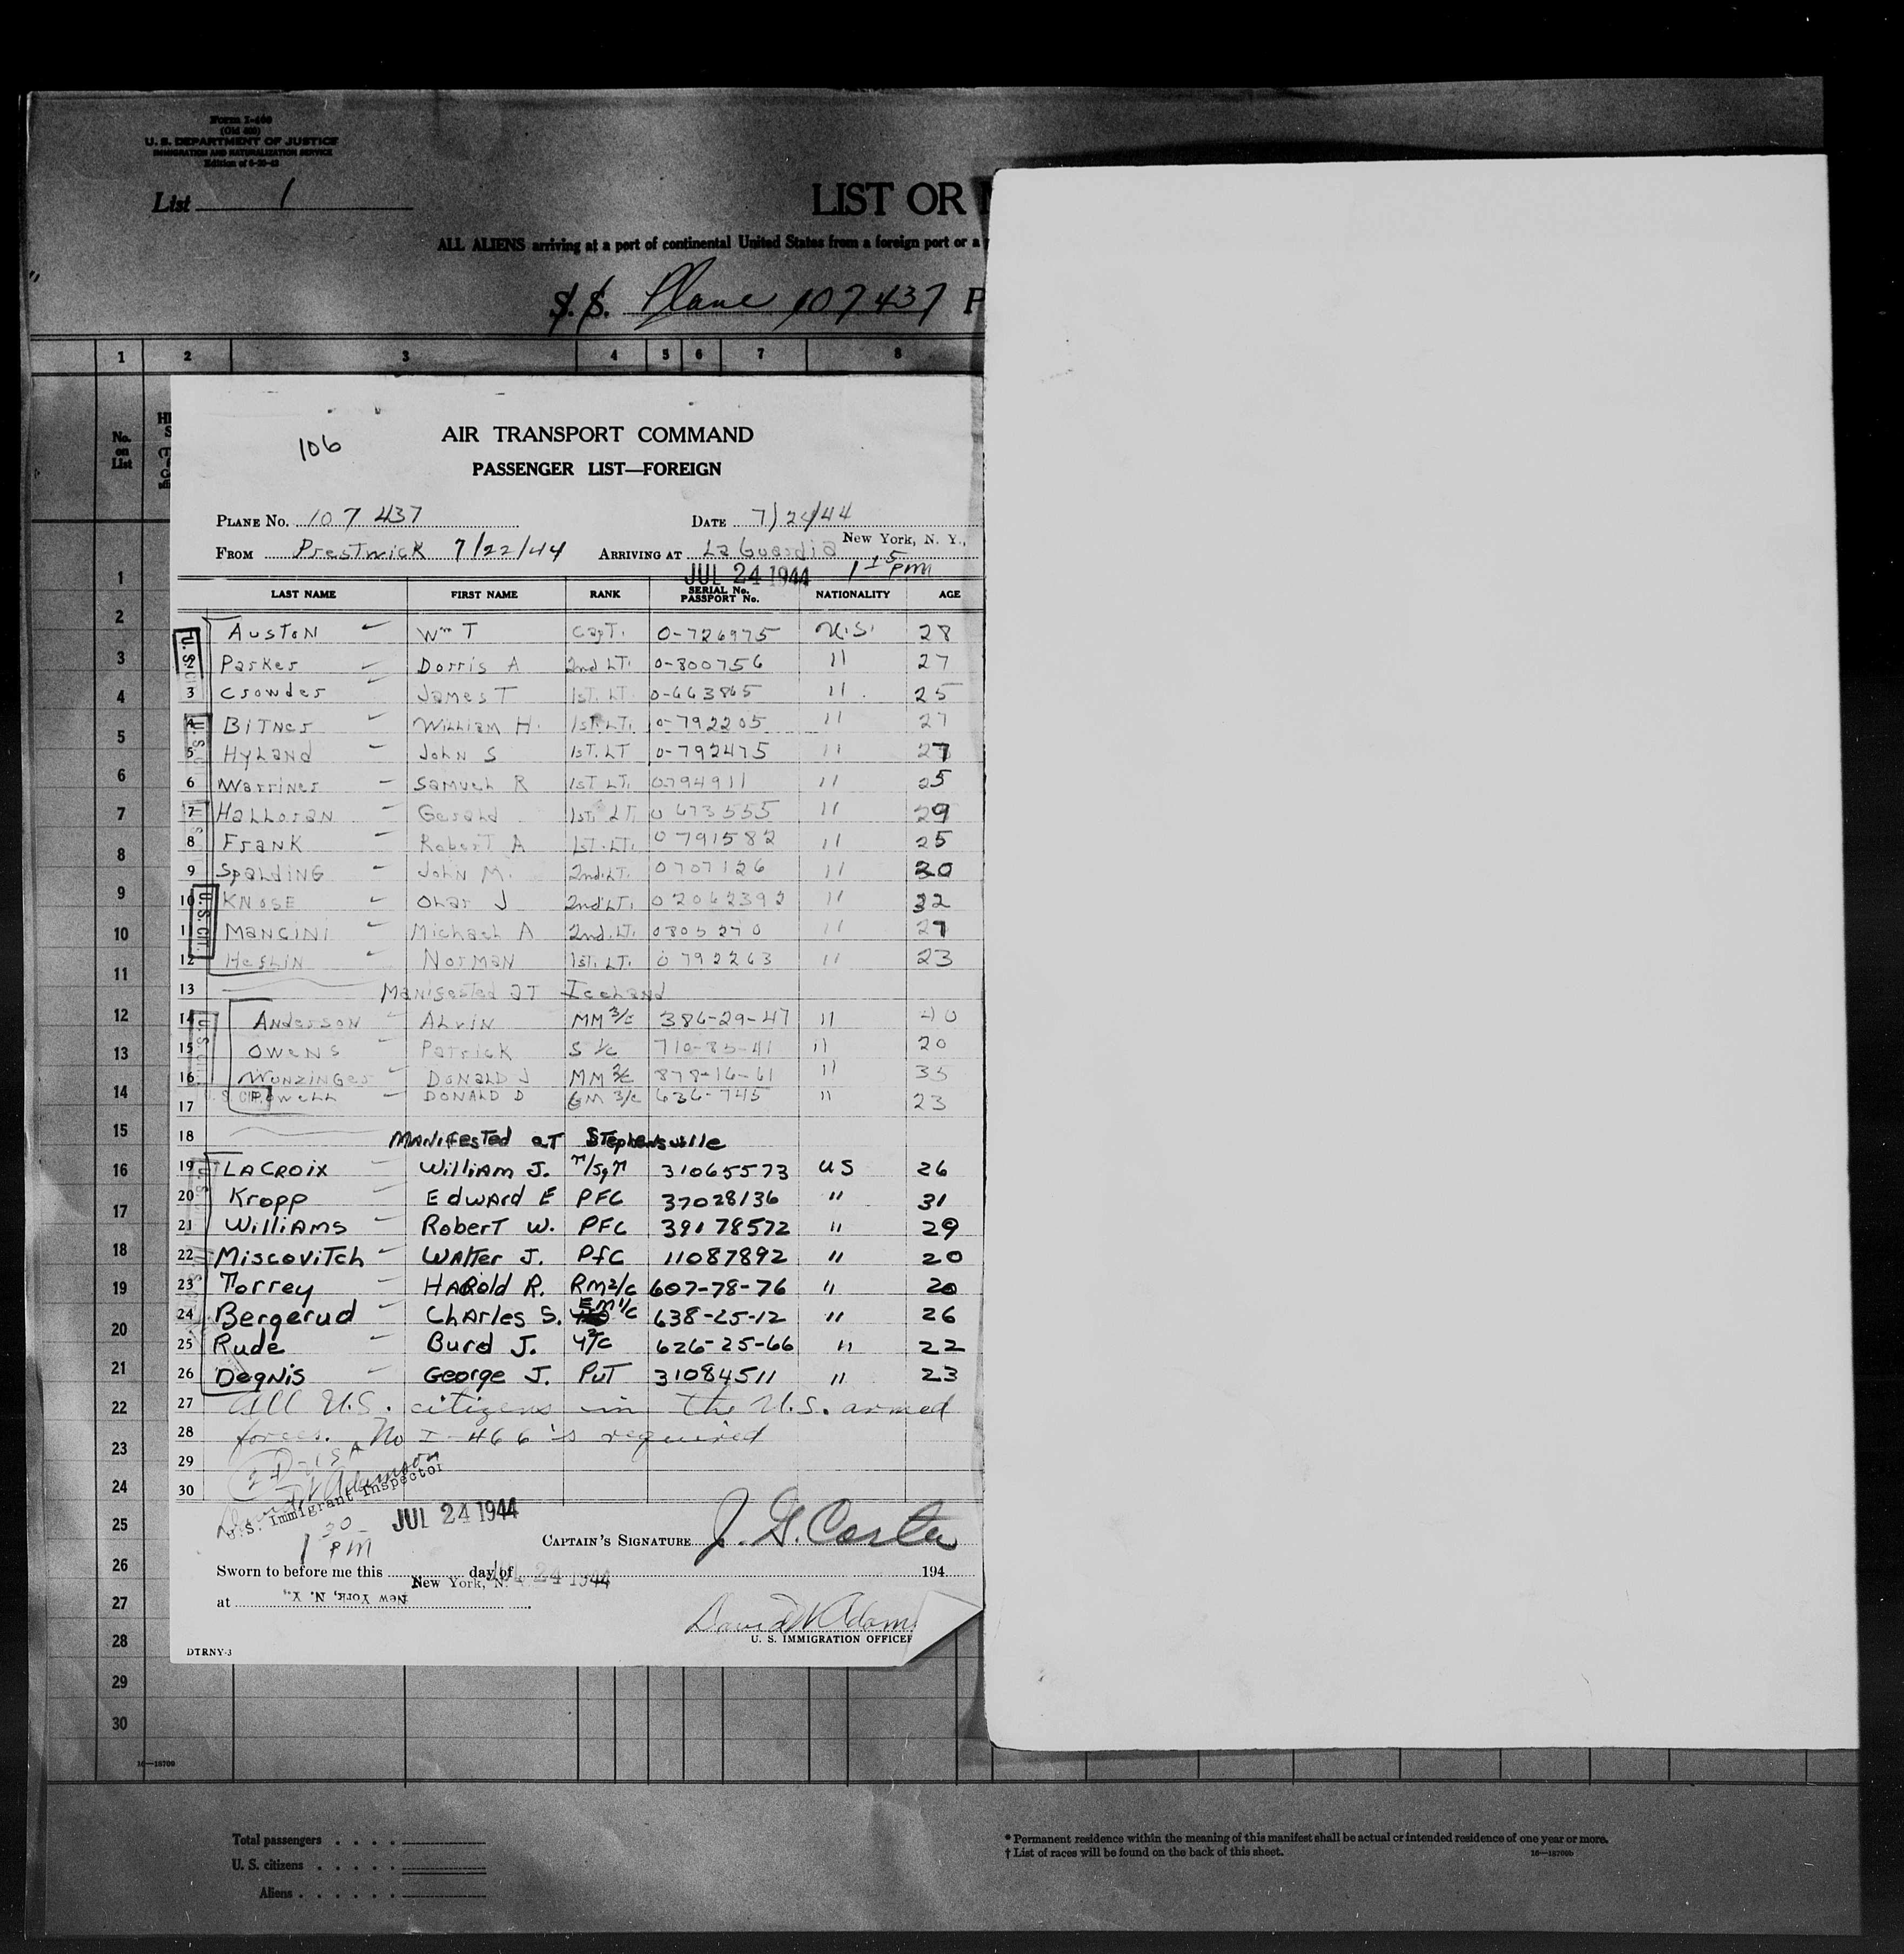 Form I-466
(Old 500)
U. S. DEPARTMENT OF JUSTICE
IMMIGRATION AND NATURALIZATION SERVICE
List 1
LIST OR
ALL ALIENS arriving at a port of continental United States from a foreign port or a
S. S. Plane 107437 P
1 2 3 4 5 6 7 8
No. on List
106
AIR TRANSPORT COMMAND
PASSENGER LIST—FOREIGN
PLANE No. 107 437 DATE 7/24/44
FROM Prestwick 7/22/44 ARRIVING AT La Guardia New York, N. Y.,
JUL 24 1944 1 15 PM
LAST NAME FIRST NAME RANK SERIAL No. PASSPORT No. NATIONALITY AGE
Auston Wm T Capt. 0-726975 U.S. 28
2 Parker Dorris A 2nd LT. 0-800756 " 27
3 Crowder James T 1st. LT. 0-663865 " 25
4 Bitner William H. 1st. LT. 0-792205 " 27
5 Hyland John S 1st. LT 0-792475 " 27
6 Warriner Samuel R 1st LT. 0794911 " 25
7 Halloran Gerald 1st. LT. 0 673555 " 29
8 Frank Robert A 1st. LT. 0 791582 " 25
9 Spalding John M. 2nd. LT. 0707126 " 30
10 Knose Ohar J 2nd LT. 02062392 " 32
11 Mancini Michael A 2nd. LT. 0805270 " 27
12 Heslin Norman 1st. LT. 0 792263 " 23
13 Manifested at Iceland
14 Anderson Alvin MM 3/c 386-29-47 " 40
15 Owens Patrick S 1/c 710-85-41 " 20
16 Wunzinger Donald J MM 2/c 878-16-61 " 35
17 Powell Donald D GM 3/c 636-745 " 23
18 Manifested at Stephensville
19 LaCroix William J. T/Sgt 31065573 US 26
20 Kropp Edward E PFC 37028136 " 31
21 Williams Robert W. PFC 39178572 " 29
22 Miscovitch Walter J. Pfc 11087892 " 20
23 Torrey Harold R. RM2/c 607-78-76 " 20
24 Bergerud Charles S. EM1/c 638-25-12 " 26
25 Rude Burd J. Y2/c 626-25-66 " 22
26 Degnis George J. PvT 31084511 " 23
27 All U.S. citizens in the U.S. armed
28 forces. No I-466 is required
29
30
U.S. Immigrant Inspector
JUL 24 1944
1 30 PM
CAPTAIN'S SIGNATURE J. G. Carter
Sworn to before me this day of JUL 24 1944 194
New York, N.
at New York, N. Y.,
U. S. IMMIGRATION OFFICER
DTRNY-3
1
2
3
4
5
6
7
8
9
10
11
12
13
14
15
16
17
18
19
20
21
22
23
24
25
26
27
28
29
30
16—18700
Total passengers
U. S. citizens
Aliens
* Permanent residence within the meaning of this manifest shall be actual or intended residence of one year or more.
† List of races will be found on the back of this sheet.
16—18700b